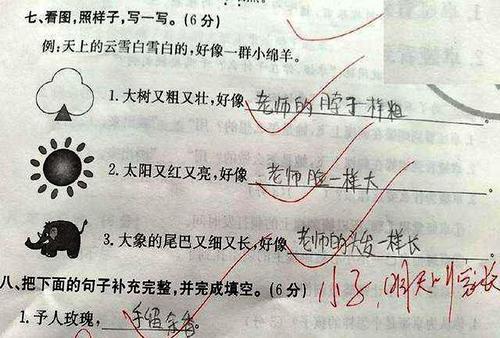 七、看图,照样子,写一写。(6分)
例:天上的云雪白雪白的,好像一群小绵羊。
1.大树又粗又壮,好像老师的脖子一样粗。
2.太阳又红又亮,好像老师脸一样大。
3.大象的尾巴又细又长,好像老师的头发一样长
小子,明天叫家长
八、把下面的句子补充完整,并完成填空。(6分)
1.予人玫瑰,手留余香。